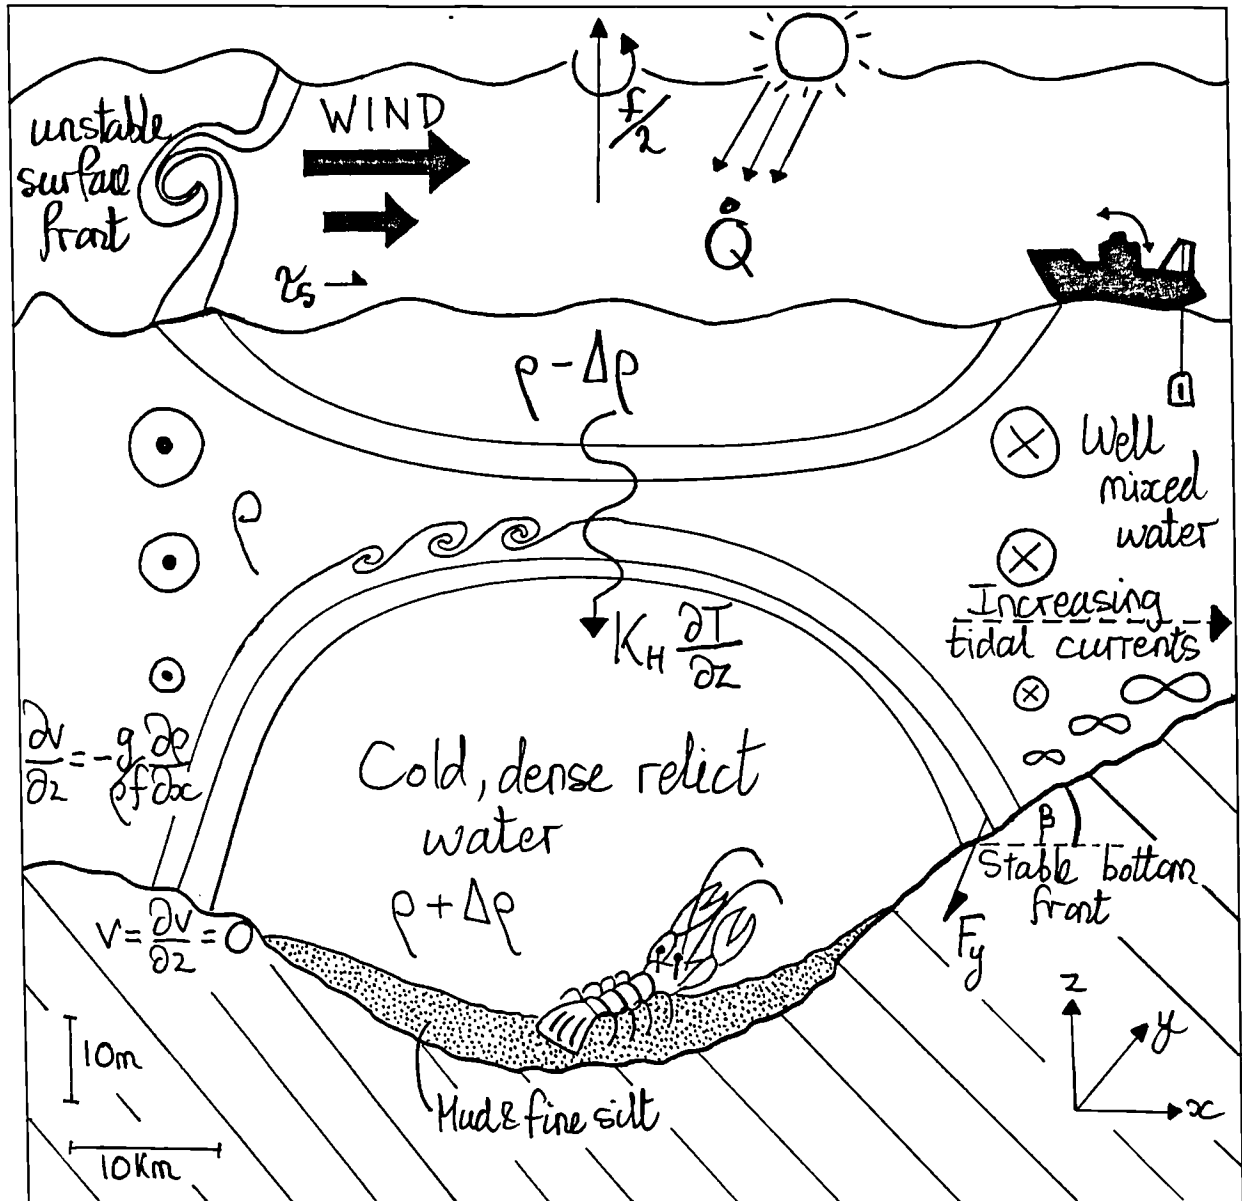 unstable
surface
front
WIND
f/2
τs
Q̇
ρ - Δρ
ρ
Well
mixed
water
Increasing
tidal currents
K_H ∂T/∂z
∂v/∂z = -g/ρf ∂ρ/∂x
Cold, dense relict
water
ρ + Δρ
β
Stable bottom
front
V = ∂v/∂z = 0
Fy
z
y
x
10m
10Km
Mud & fine silt